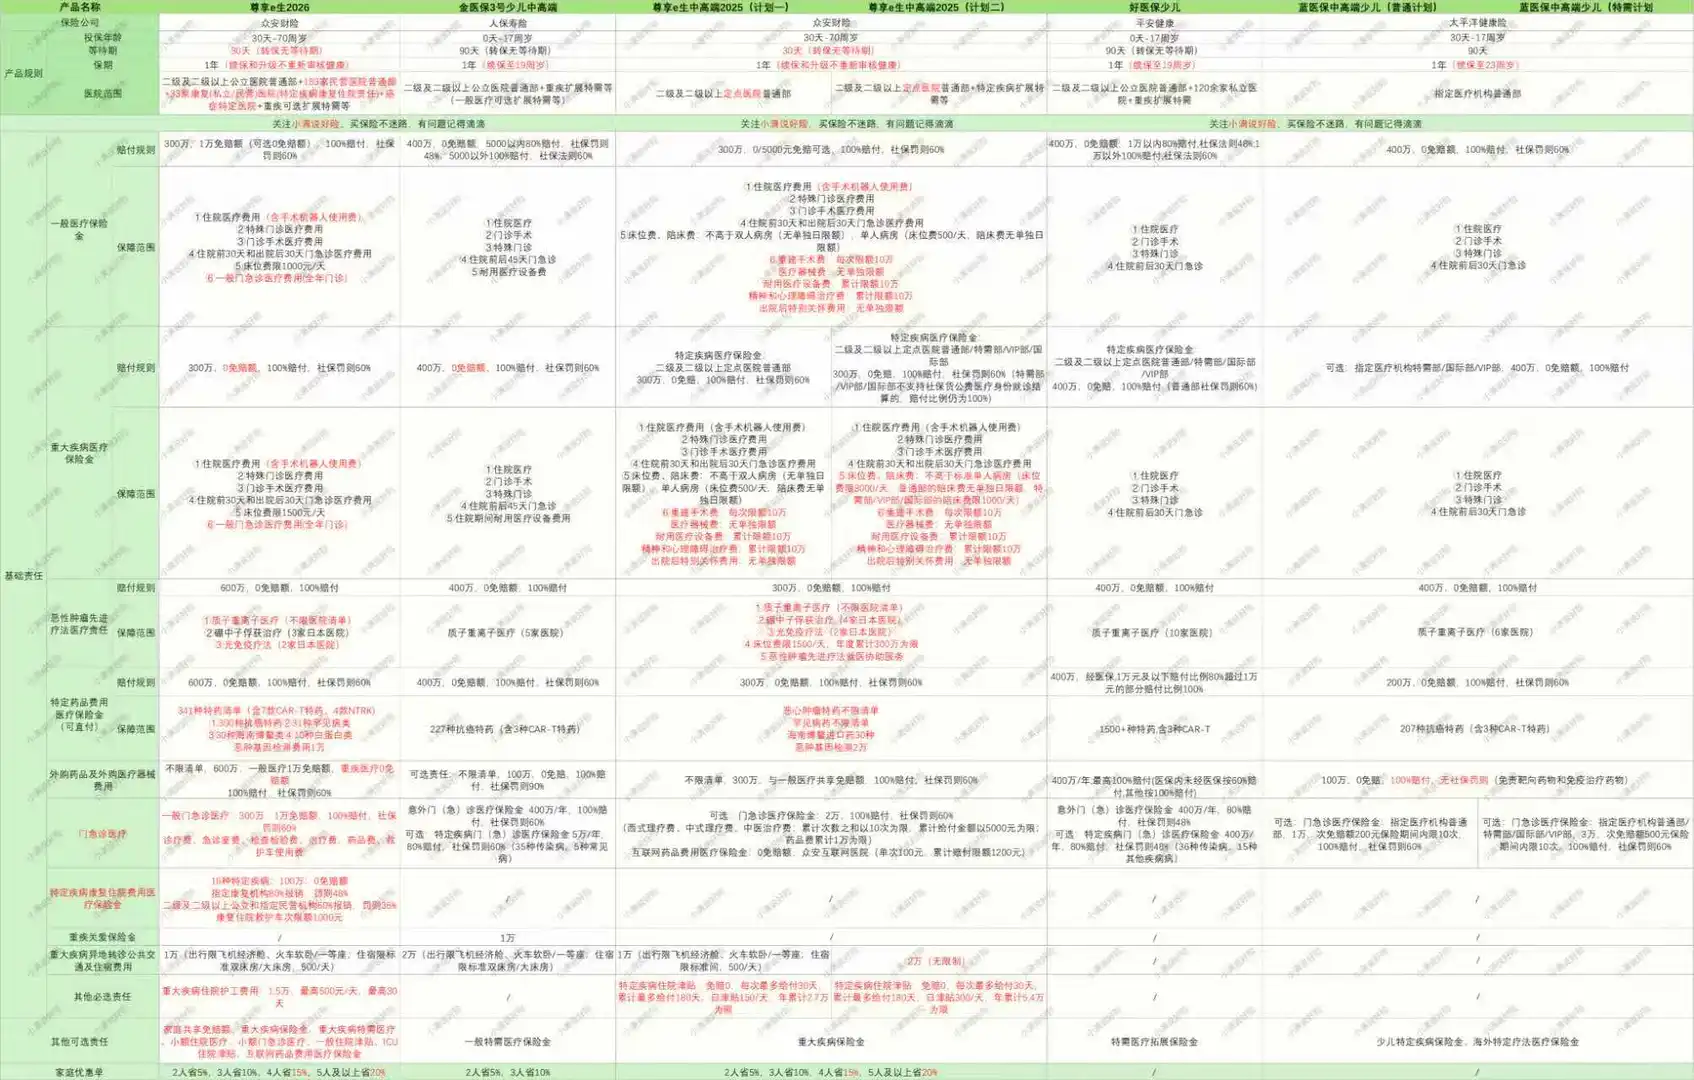 产品名称 尊享e生2026 金医保3号少儿中高端 尊享e生中高端2025（计划一） 尊享e生中高端2025（计划二） 好医保少儿 蓝医保中高端少儿（普通计划） 蓝医保中高端少儿（特需计划
产品规则
保险公司 众安财险 人保寿险 众安财险 平安健康 太平洋健康险
投保年龄 30天-70周岁 0天-17周岁 30天-70周岁 0天-17周岁 30天-17周岁
等待期 30天（转保无等待期） 90天（转保无等待期） 30天（转保无等待期） 90天（转保无等待期） 90天
保期 1年（续保和升级不重新审核健康） 1年（续保至19周岁） 1年（续保和升级不重新审核健康） 1年（续保至19周岁） 1年（续保至23周岁）
医院范围
二级及二级以上公立医院普通部+
家康复(私立/民营)医院(特定疾病康复住院责任)+癌
症特定医院+重疾可选扩展特需等
二级及二级以上公立医院普通部+重疾扩展特需等
（一般医疗可选扩展特需等）
二级及二级以上定点医院普通部
二级及二级以上定点医院普通部+特定疾病扩展特
需等
二级及二级以上公立医院普通部+120余家私立医
院+重疾扩展特需
指定医疗机构普通部
关注小满说好险，买保险不迷路，有问题记得滴滴
关注小满说好险，买保险不迷路，有问题记得滴滴
关注小满说好险，买保险不迷路，有问题记得滴滴
基础责任
一般医疗保险
金
赔付规则
300万，1万免赔额（可选0免赔额），100%赔付，社保
罚则60%
400万，0免赔额，5000以内80%赔付，社保罚则
48%；5000以外100%赔付，社保法则60%
300万，0/5000元免赔可选，100%赔付，社保罚则60%
400万，0免赔额，1万以内80%赔付,社保法则48%;1
万以外100%赔付,社保法则60%
400万，0免赔额，100%赔付，社保罚则60%
保障范围
1.住院医疗费用（含手术机器人使用费）
2.特殊门诊医疗费用
3.门诊手术医疗费用
4.住院前30天和出院后30天门急诊医疗费用
5.床位费限1000元/天
6.一般门急诊医疗费用(全年门诊)
1.住院医疗
2.门诊手术
3.特殊门诊
4.住院前后45天门急诊
5.耐用医疗设备费
1.住院医疗费用（含手术机器人使用费）
2.特殊门诊医疗费用
3.门诊手术医疗费用
4.住院前30天和出院后30天门急诊医疗费用
5.床位费、陪床费：不高于双人病房（无单独日限额），单人病房（床位费500/天，陪床费无单独日
限额）
6.重建手术费：每次限额10万
医疗器械费：无单独限额
耐用医疗设备费：累计限额10万
精神和心理障碍治疗费：累计限额10万
出院后特别关怀费用：无单独限额
1.住院医疗
2.门诊手术
3.特殊门诊
4.住院前后30天门急诊
1.住院医疗
2.门诊手术
3.特殊门诊
4.住院前后30天门急诊
重大疾病医疗
保险金
赔付规则
300万，0免赔额，100%赔付，社保罚则60%
400万，0免赔额，100%赔付，社保罚则60%
特定疾病医疗保险金:
二级及二级以上定点医院普通部
300万，0免赔，100%赔付，社保罚则60%
特定疾病医疗保险金:
二级及二级以上定点医院普通部/特需部/VIP部/国
际部
300万，0免赔，100%赔付，社保罚则60%（特需部
/VIP部/国际部不支持社保货公费医疗身份就诊结
算的，赔付比例仍为100%）
特定疾病医疗保险金:
二级及二级以上定点医院普通部/特需部/国际部
/VIP部
400万，0免赔，100%赔付（普通部社保罚则60%）
可选：指定医疗机构特需部/国际部/VIP部，400万，0免赔额，100%赔付
保障范围
1.住院医疗费用（含手术机器人使用费）
2.特殊门诊医疗费用
3.门诊手术医疗费用
4.住院前30天和出院后30天门急诊医疗费用
5.床位费限1500元/天
6.一般门急诊医疗费用(全年门诊)
1.住院医疗
2.门诊手术
3.特殊门诊
4.住院前后45天门急诊
5.住院期间耐用医疗设备费用
1.住院医疗费用（含手术机器人使用费）
2.特殊门诊医疗费用
3.门诊手术医疗费用
4.住院前30天和出院后30天门急诊医疗费用
5.床位费、陪床费：不高于双人病房（无单独日
限额），单人病房（床位费500/天，陪床费无单
独日限额）
6.重建手术费：每次限额10万
医疗器械费：无单独限额
耐用医疗设备费：累计限额10万
精神和心理障碍治疗费：累计限额10万
出院后特别关怀费用：无单独限额
1.住院医疗费用（含手术机器人使用费）
2.特殊门诊医疗费用
3.门诊手术医疗费用
4.住院前30天和出院后30天门急诊医疗费用
5.床位费、陪床费：不高于标准单人病房（床位
费限3000/天，普通部的陪床费无单独日限额，特
需部/VIP部/国际部的陪床费限1000/天）
6.重建手术费：每次限额10万
医疗器械费：无单独限额
耐用医疗设备费：累计限额10万
精神和心理障碍治疗费：累计限额10万
出院后特别关怀费用：无单独限额
1.住院医疗
2.门诊手术
3.特殊门诊
4.住院前后30天门急诊
1.住院医疗
2.门诊手术
3.特殊门诊
4.住院前后30天门急诊
恶性肿瘤先进
疗法医疗责任
赔付规则 600万，0免赔额，100%赔付 400万，0免赔额，100%赔付 300万，0免赔额，100%赔付 400万，0免赔额，100%赔付 400万，0免赔额，100%赔付
保障范围
1.质子重离子医疗（不限医院清单）
2.硼中子俘获治疗（3家日本医院）
3.光免疫疗法（2家日本医院）
质子重离子医疗（5家医院）
1.质子重离子医疗（不限医院清单）
2.硼中子俘获治疗（4家日本医院）
3.光免疫疗法（2家日本医院）
4.床位费限1500/天，年度累计300万为限
5.恶性肿瘤先进疗法就医协助服务
质子重离子医疗（10家医院）
质子重离子医疗（6家医院）
特定药品费用
医疗保险金
（可直付）
赔付规则 600万，0免赔额，100%赔付，社保罚则60% 400万，0免赔额，100%赔付，社保罚则60% 300万，0免赔额，100%赔付，社保罚则60%
400万，经医保,1万元及以下赔付比例80%超过1万
元的部分赔付比例100%
200万，0免赔额，100%赔付，社保罚则60%
保障范围
341种特药清单（含7款CAR-T特药、4款NTRK）
1.300种抗癌特药 2.31种罕见病类
3.30种海南博鳌类 4.10种白蛋白类
恶肿基因检测费用1万
227种抗癌特药（含3种CAR-T特药）
恶心肿瘤特药不限清单
罕见病药不限清单
海南博鳌进口药30种
恶肿基因检测2万
1500+种特药,含3种CAR-T
207种抗癌特药（含3种CAR-T特药）
外购药品及外购医疗器械
费用
不限清单，600万，一般医疗1万免赔额，重疾医疗0免
赔额
100%赔付，社保罚则60%
可选责任：不限清单，100万，0免赔，100%赔
付，社保罚则90%
不限清单，300万，与一般医疗共享免赔额，100%赔付，社保罚则60%
400万/年,最高100%赔付(医保内未经医保按60%赔
付,其他按100%赔付)
100万，0免赔，100%赔付，无社保罚则（免责靶向药物和免疫治疗药物）
门急诊医疗
一般门急诊医疗：300万，1万免赔额，100%赔付，社保
罚则60%
诊疗费、急诊室费、检查检验费、治疗费、药品费、救
护车使用费
意外门（急）诊医疗保险金 400万/年，100%赔
付，社保罚则60%
可选：特定疾病门（急）诊医疗保险金 5万/年，
80%赔付，社保罚则60%（35种传染病，5种常见
病）
可选：门急诊医疗保险金：2万，100%赔付，社保罚则60%
（西式理疗费、中式理疗费、中医治疗费：累计次数之和以10次为限，累计给付金额以5000元为限；
药品费累计1万为限）
互联网药品费用医疗保险金：0免赔额，众安互联网医院（单次100元，累计赔付限额1200元）
意外门（急）诊医疗保险金 400万/年，80%赔
付，社保罚则48%
可选：特定疾病门（急）诊医疗保险金 400万/
年，80%赔付，社保罚则48%（36种传染病，15种
其他疾病病）
可选：门急诊医疗保险金：指定医疗机构普通
部，1万，次免赔额200元保险期间内限10次，
100%赔付，社保罚则60%
可选：门急诊医疗保险金：指定医疗机构普通部/
特需部/国际部/VIP部，3万，次免赔额500元保险
期间内限10次，100%赔付，社保罚则60%
特定疾病康复住院费用医
疗保险金
16种特定疾病：100万，0免赔额
指定康复机构80%报销，罚则48%
二级及二级以上公立和指定民营机构60%报销，罚则36%
康复住院救护车次限额1000元
/ / / /
重疾关爱保险金 / 1万 / / /
重大疾病异地转诊公共交
通及住宿费用
1万（出行限飞机经济舱、火车软卧/一等座，住宿限标
准双床房/大床房，500/天）
2万（出行限飞机经济舱、火车软卧/一等座，住宿
限标准双床房/大床房）
1万（出行限飞机经济舱、火车软卧/一等座，住宿
限标准间，500/天）
2万（无限制）
/ /
其他必选责任
重大疾病住院护工费用：1.5万，最高500元/天，最高30
天
/
特定疾病住院津贴：免赔0，每次最多给付30天，
累计最多给付180天，日津贴150/天，年累计2.7万
为限
特定疾病住院津贴：免赔0，每次最多给付30天，
累计最多给付180天，日津贴300/天，年累计5.4万
为限
/ /
其他可选责任
家庭共享免赔额、重大疾病保险金、重大疾病特需医疗
、小额住院医疗、小额门急诊医疗、一般住院津贴、ICU
住院津贴、互联网药品费用医疗保险金
一般特需医疗保险金
重大疾病保险金
特需医疗拓展保险金
少儿特定疾病保险金、海外特定疗法医疗保险金
家庭优惠单 2人省5%、3人省10%、4人省15%、5人及以上省20% 2人省5%、3人省10% 2人省5%、3人省10%、4人省15%、5人及以上省20% / /